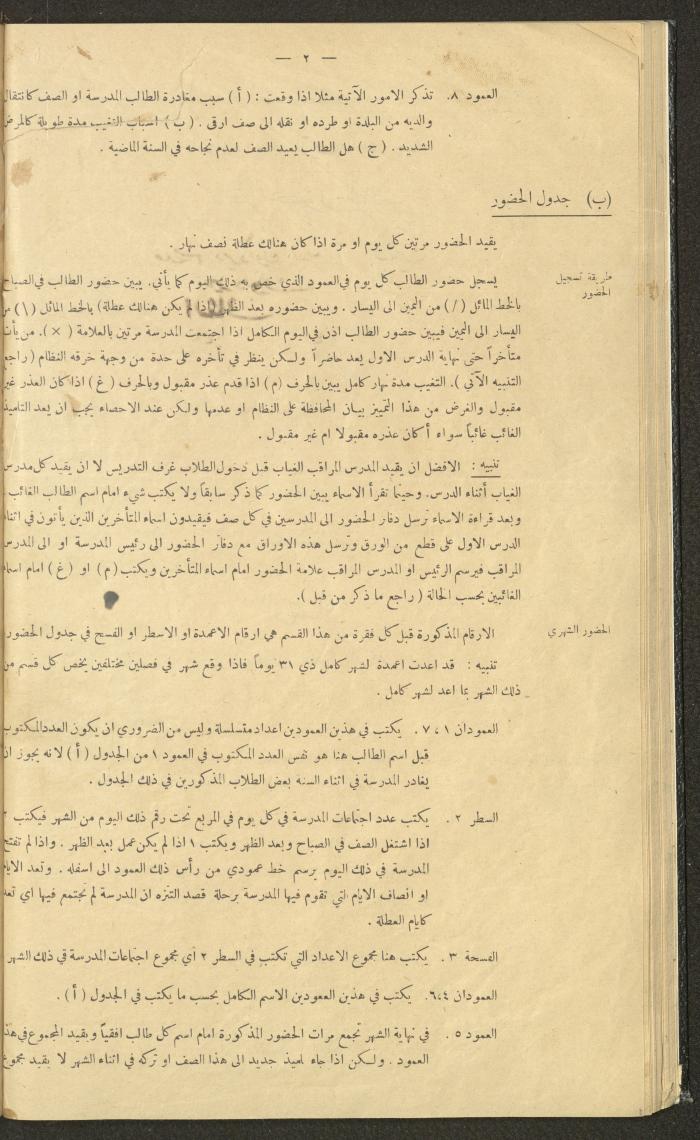 — ٢ —
العمود ٨. تذكر الامور الآتية مثلا اذا وقعت : ( أ ) سبب مغادرة الطالب المدرسة او الصف كانتقال
والديه من البلدة او طرده او نقله الى صف ارقى . ( ب ) اسباب التغيب مدة طويلة كالمرض
الشديد . ( ج ) هل الطالب يعيد الصف لعدم نجاحه في السنة الماضية .
(ب) جدول الحضور
يقيد الحضور مرتين كل يوم او مرة اذا كان هنالك عطلة نصف نهار .
طريقة تسجيل
الحضور
يسجل حضور الطالب كل يوم في العمود الذي خص به ذلك اليوم كما يأتي. يبين حضور الطالب في الصباح
بالخط المائل ( / ) من اليمين الى اليسار . ويبين حضوره بعد الظهر (اذا لم يكن هنالك عطلة) بالخط المائل (\)
اليسار الى اليمين فيبين حضور الطالب اذن في اليوم الكامل اذا اجتمعت المدرسة مرتين بالعلامة ( × ). من يأت
متأخراً حتى نهاية الدرس الاول يعد حاضراً ولكن ينظر في تأخره على حدة من وجهة خرقه النظام ( راجع
التنبيه الآتي ). التغيب مدة نهار كامل يبين بالحرف ( م ) اذا قدم عذر مقبول وبالحرف ( غ ) اذا كان العذر غير
مقبول والغرض من هذا التمييز بيان المحافظة على النظام او عدمها ولكن عند الاحصاء يجب ان يعد التلميذ
الغائب غائباً سواء أكان عذره مقبولا ام غير مقبول .
تنبيه : الافضل ان يقيد المدرس المراقب الغياب قبل دخول الطلاب غرف التدريس لا ان يقيد كل مدرس
الغياب أثناء الدرس. وحينما تقرأ الاسماء يبين الحضور كما ذكر سابقاً ولا يكتب شيء امام اسم الطالب الغائب .
وبعد قراءة الاسماء ترسل دفاتر الحضور الى المدرسين في كل صف فيقيدون اسماء المتأخرين الذين يأتون في اثناء
الدرس الاول على قطع من الورق وترسل هذه الاوراق مع دفاتر الحضور الى رئيس المدرسة او الى المدرس
المراقب فيرسم الرئيس او المدرس المراقب علامة الحضور امام اسماء المتأخرين ويكتب ( م ) او ( غ ) امام اسماء
الغائبين بحسب الحالة ( راجع ما ذكر من قبل ).
الحضور الشهري
الارقام المذكورة قبل كل فقرة من هذا القسم هي ارقام الاعمدة او الاسطر او الفسح في جدول الحضور
تنبيه : قد اعدت اعمدة لشهر كامل ذي ٣١ يوماً فاذا وقع شهر في فصلين مختلفين يخص كل قسم من
ذلك الشهر بما اعد لشهر كامل .
العمودان ١ ، ٧ . يكتب في هذين العمودين اعداد متسلسلة وليس من الضروري ان يكون العدد المكتوب
قبل اسم الطالب هنا هو نفس العدد المكتوب في العمود ١ من الجدول ( أ ) لانه يجوز ان
يغادر المدرسة في اثناء السنة بعض الطلاب المذكورين في ذلك الجدول .
السطر ٢ . يكتب عدد اجتماعات المدرسة في كل يوم في المربع تحت رقم ذلك اليوم من الشهر فيكتب ٢
اذا اشتغل الصف في الصباح وبعد الظهر ويكتب ١ اذا لم يكن عمل بعد الظهر . واذا لم تفتح
المدرسة في ذلك اليوم يرسم خط عمودي من رأس ذلك العمود الى اسفله . وتعد الايام
او انصاف الايام التي تقوم فيها المدرسة برحلة قصد التنزه ان المدرسة لم تجتمع فيها اي تعد
كايام العطلة .
الفسحة ٣ . يكتب هنا مجموع الاعداد التي تكتب في السطر ٢ اي مجموع اجتماعات المدرسة في ذلك الشهر
العمودان ٦،٤. يكتب في هذين العمودين الاسم الكامل بحسب ما يكتب في الجدول ( أ ) .
العمود ٥ . في نهاية الشهر تجمع مرات الحضور المذكورة امام اسم كل طالب افقياً ويقيد المجموع في هذا
العمود . ولكن اذا جاء تلميذ جديد الى هذا الصف او تركه في اثناء الشهر لا يقيد مجموع